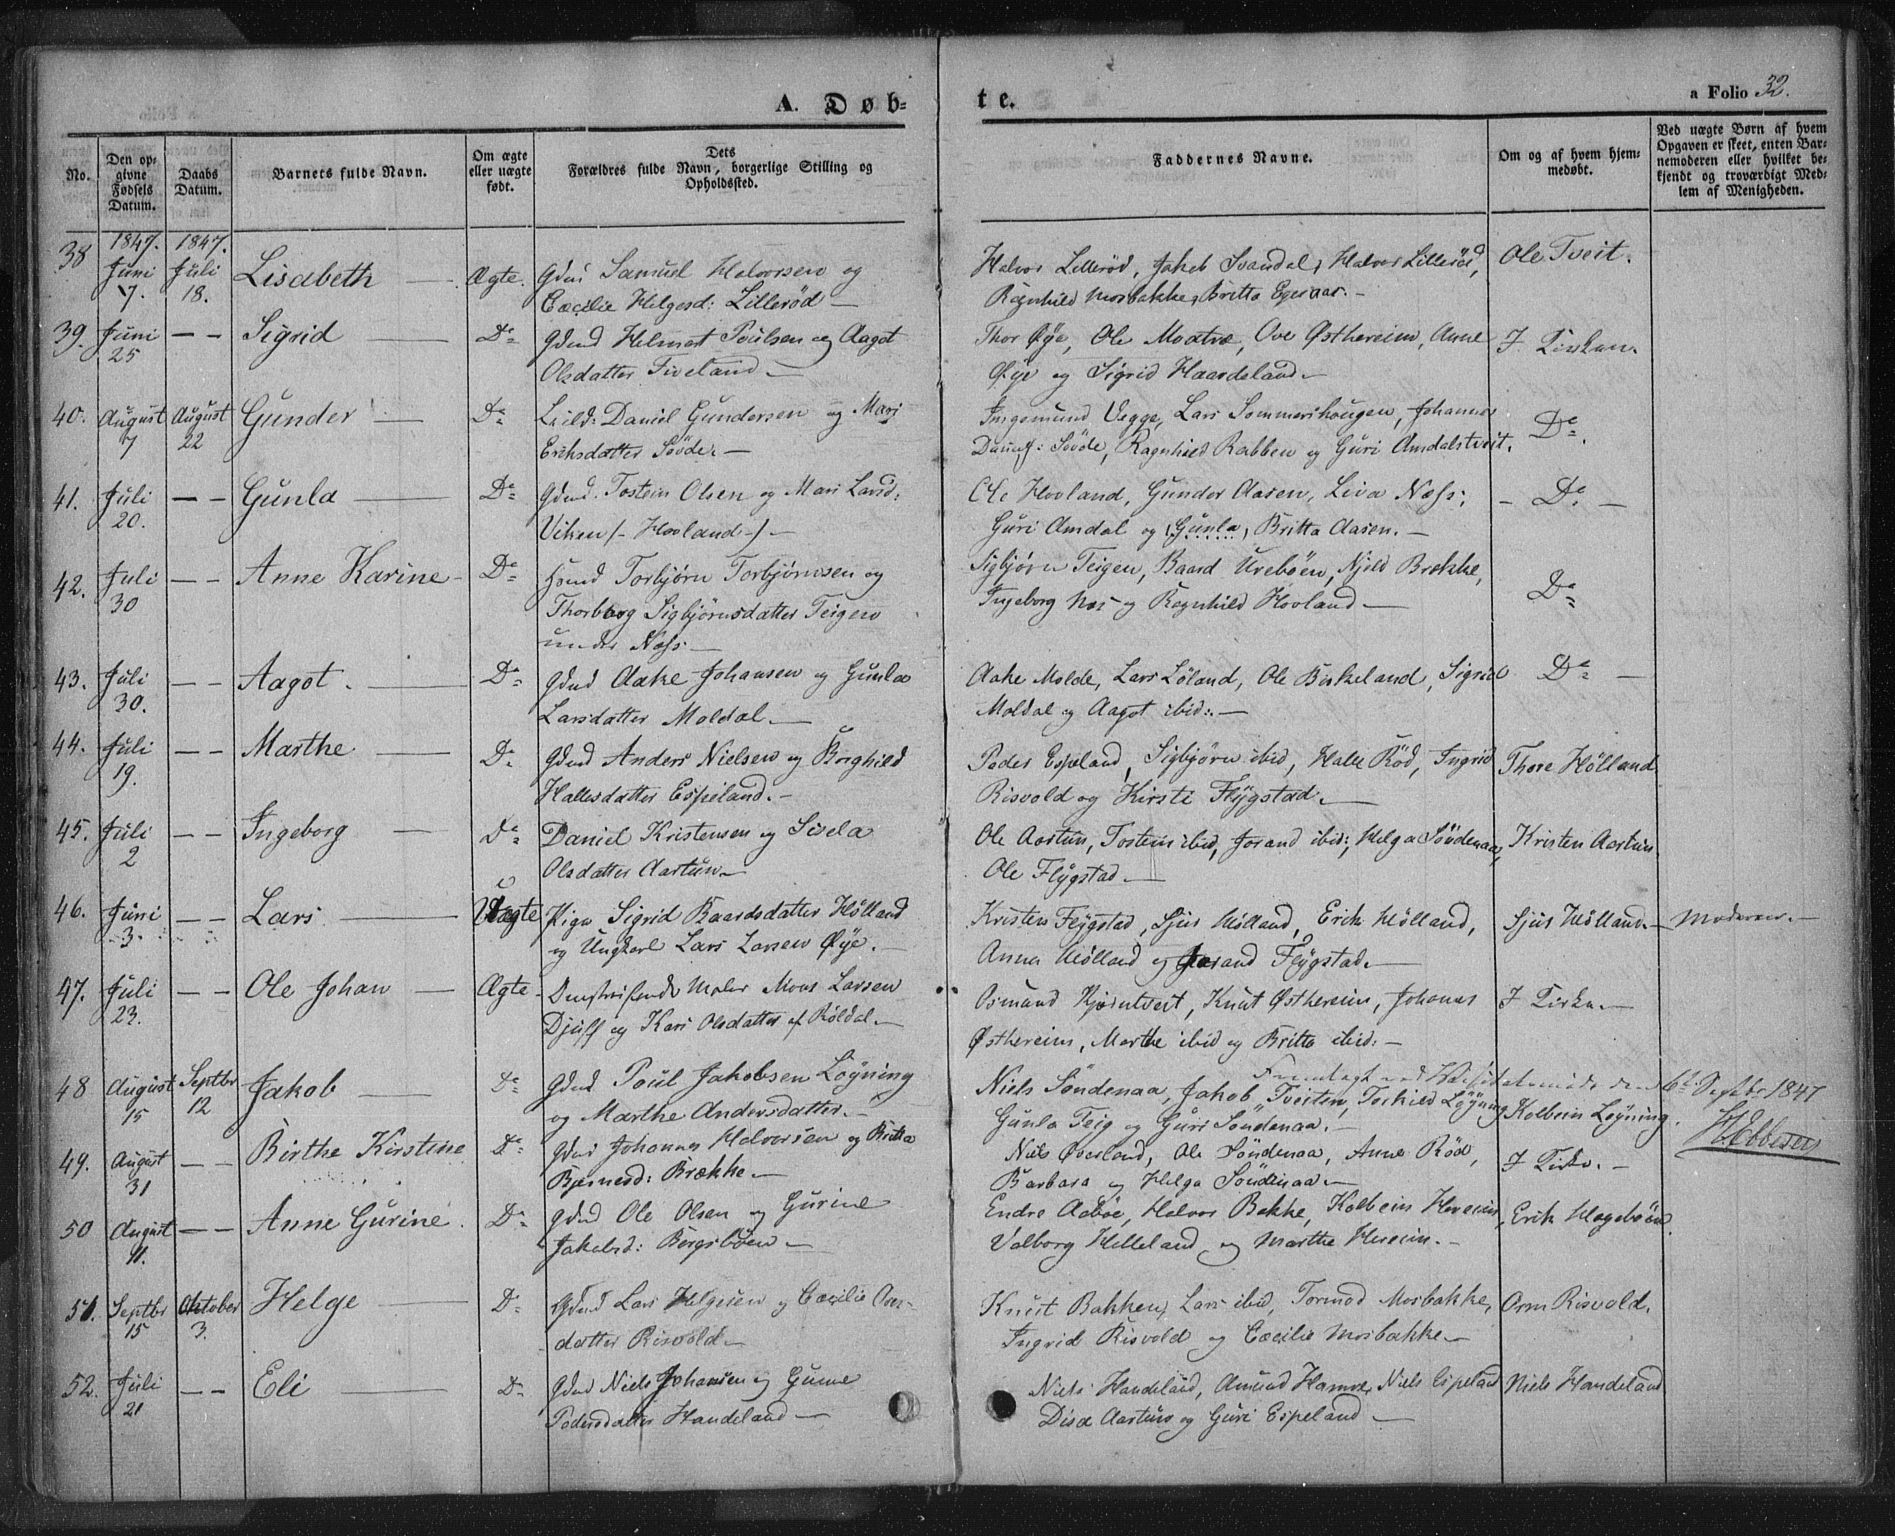 A. Døb=
te.
a Folio 32.
No.
Den op=
givne
Fødsels
Datum.
Daabs
Datum.
Barnets fulde Navn.
Om ægte
eller uægte
født.
Dets
Forældres fulde Navn, borgerlige Stilling og
Opholdssted.
Faddernes Navne.
Om og af hvem hjem=
medøbt.
Ved uægte Børn af hvem
Opgaven er skeet, enten Bar=
nemoderen eller hvilket be=
kjendt og troværdigt Med=
lem af Menigheden.
38 1847. Juni 7. 1847. Juli 18. Lisabeth — Ægte. Gdmd Samuel Halvorsen og
Cæcilie Helgesd: Lillerød —
Halvor Lillerød, Jakob Svandal, Halvor Lillerød,
Ragnhild Mosbakke, Britta —
Ole Tveit.
39. Juni 25 — — Sigrid — Do Gdmd Helmot Poulsen og Aagot
Olsdatter Fiveland —
Thor Øye, Ole Moatræ, Ove Østhereim, Anne
Øye og Sigrid Haardeland —
I Kirken.
40. August 7 August 22 Gunder — Do Daniel Gundersen og Mari
Eriksdatter Søvde. —
Ingemund Vægge, Lars Sommerhougen, Johannes
Søvde, Ragnhild Rabben og Guri Amdalstveit.
Do
41. Juli 20. — — Gunla — Do Gdmd. Tostein Olsen og Mari Larsd:
Viken /- Hovland -/ —
Ole Hovland, Gunder Aasen, Liva Næss,
Guri Amdal og (Gunla) Britta Aasen. —
— Do —
42. Juli 30 — — Anne Karine — Do Torbjørn Torbjørnsen og
Thorborg Sigbjørnsdatter Teigen
under Næss —
Sigbjørn Teigen, Baard Urebøen, Njeld Brekke,
Ingeborg Næs og Ragnhild Hovland —
Do
43. Juli 30. — — Aagot. — Do Gdmd Aake Johansen og Gunla
Larsdatter Moldal. —
Aake Molde, Lars Løland, Ole Birkeland, Sigrid
Moldal og Aagot ibid: —
Do —
44. Juli 19. — — Marthe — Do Gdmd Anders Nielsen og Borghild
Hallesdatter Espeland. —
Peder Espeland, Sigbjørn ibid, Halle Rød, Ingrid
Risvold og Kirsti Flygstad. —
Thore Hølland
45. Juli 2 — — Ingeborg — Do Daniel Kristensen og Sisela
Olsdatter Aartun —
Ole Aartun, Tostein ibid, Jorand ibid:, Helga Søndenaa,
Ole Flygstad. —
Kristen Aartun
46. Juni 3. — — Lars — Uægte Pige Sigrid Baardsdatter Hølland
og Ungkarl Lars Larsen Øye. —
Kristen Flygstad, Sjur Hølland, Erik Hølland,
Anna Hølland og Jorand Flygstad. —
Sjur Hølland. — Moderen. —
47. Juli 23. — — Ole Johan — Ægte — Maler Mons Larsen
Djuff og Kari Olsdatter af Røldal. —
Osmund Hjørntveit, Knut Østhereim, Johanes
Østhereim, Marthe ibid og Britta ibid: —
I Kirke. —
Fremlagt ved Visitatsmøde den 6te Septbr 1847
48 August 15 Septbr 12 Jakob — Do Gdmd Poul Jakobsen Løyning
og Marthe Andersdatter. —
Niels Søndenaa, Jakob Tveiten, Torkild Løyning,
Gunla Teig og Guri Søndenaa. —
Kolbein Løyning.
49. August 31 — — Birthe Kirstine Do Gdmd Johannes Halvorsen og Britta
Bjørnesd: Brække —
Niels Øverland, Ole Søndenaa, Anne Rød,
Barbara og Helga Søndenaa —
I Kirke. —
50 August 11. — — Anne Gurine. Do Gdmd Ole Olsen og Gurine
Jakobsd: Bergsbøen —
Endre Aabøe, Halvor Bakke, Kolbein Hereim,
Valborg Helleland og Marthe Hereim. —
Erik Hagebøen
51. Septbr 15 Oktober 3. Helge — Do Gdmd Lars Helgesen og Cæcilie Ors=
datter Risvold —
Knut Bakken, Lars ibid, Tormod Mosbakke,
Ingrid Risvold og Cæcilie Mosbakke —
Orm Risvold.
52. Juli 21 — — Eli — Do Gdmd Niels Johansen og Gurine
Pedersdatter Handeland —
Niels Handeland, Amund Hamre, Niels Espeland
Disa Aartun og Guri Espeland —
Niels Handeland